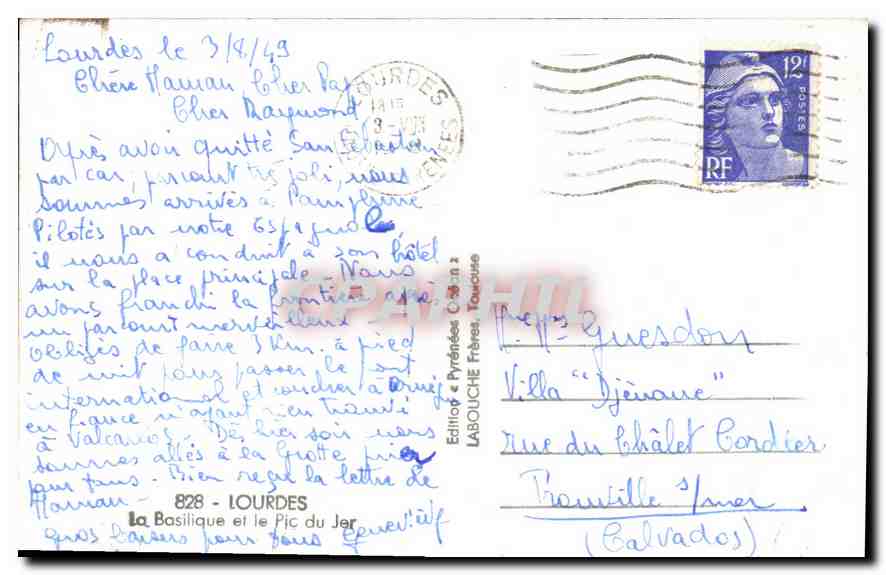 Lourdes le 3/8/49
Chère Maman Cher Pap
Cher Raymond
Après avoir quitté San Sébastian
par car, parcourt très joli, nous
sommes arrivés à Pampelune
Pilotés par notre Espagnol
il nous a conduit à son hôtel
sur la place principale. Nous
avons franchi la frontière après
un parcourt merveilleux
obligés de faire 3 Km. à pied
de nuit pour passer le pont
international et coucher à
en france n'ayant rien trouvé
à Valcarlos. Dès hier soir nous
sommes allés à la Grotte prier
pour tous. Bien reçu la lettre de
Maman -
gros baisers pour tous Geneviève
828 - LOURDES
La Basilique et le Pic du Jer
LOURDES
PYRENEES
12f
POSTES
RF
Edition « Pyrénées Océan »
LABOUCHE Frères, Toulouse
CPAPHIL
Guesdon
Villa "Djénane"
rue du Châlet Cordier
Trouville s/mer
(Calvados)